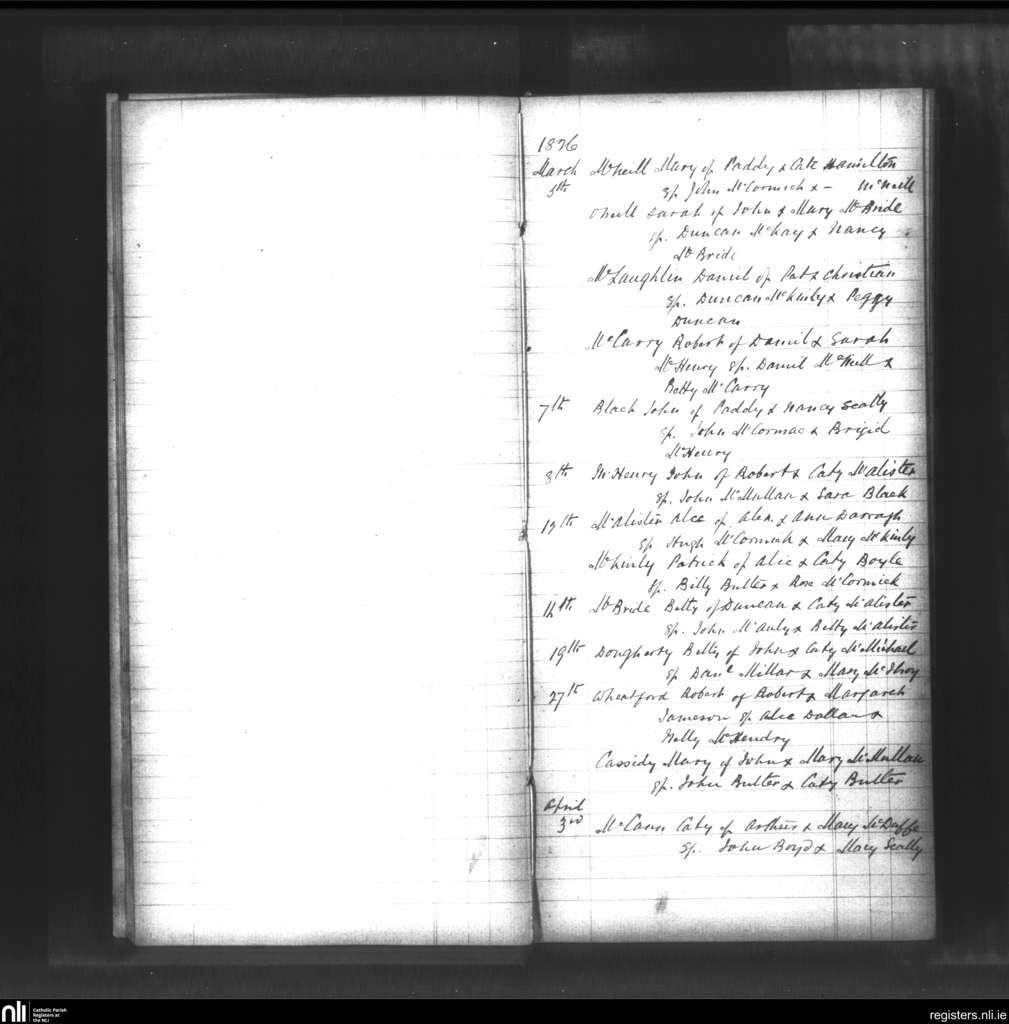 1836
March McNeill Mary of Paddy & Cate Hamilton
5th sp. John McCormick & – McNeill
ONeill Sarah of John & Mary McBride
sp. Duncan McKay & Nancy
McBride
McLaughlin Daniel of Pat & Christian
sp. Duncan McKinly & Peggy
Duncan
McCarry Robert of Daniel & Sarah
McHenry sp. Daniel McNeill &
Betty McCarry
7th Black John of Paddy & Nancy Scally
sp. John McCormac & Brigid
McHenry
8th McHenry John of Robert & Caty McAlister
sp. John McMullan & Sara Black
13th McAlister Alce of Alex. & Ann Darragh
sp Hugh McCormick & Mary McKinly
McKinly Patrick of Alic & Caty Boyle
sp. Billy Butter & Rose McCormick
14th McBride Betty of Duncan & Caty McAlister
sp. John McAuly & Betty McAlister
19th Dougherty Betty of John & Caty McMichael
sp Danl Millar & Mary McIlroy
27th Wheatford Robert of Robert & Margaret
Jameson sp Alce Dollan &
Nelly McHendry
Cassidy Mary of John & Mary McMullan
sp. John Butter & Caty Butter
April
3rd McCann Caty of Arthur & Mary McDuffe
sp. John Boyd & Mary Scally
nli Catholic Parish
Registers at
the NLI
registers.nli.ie